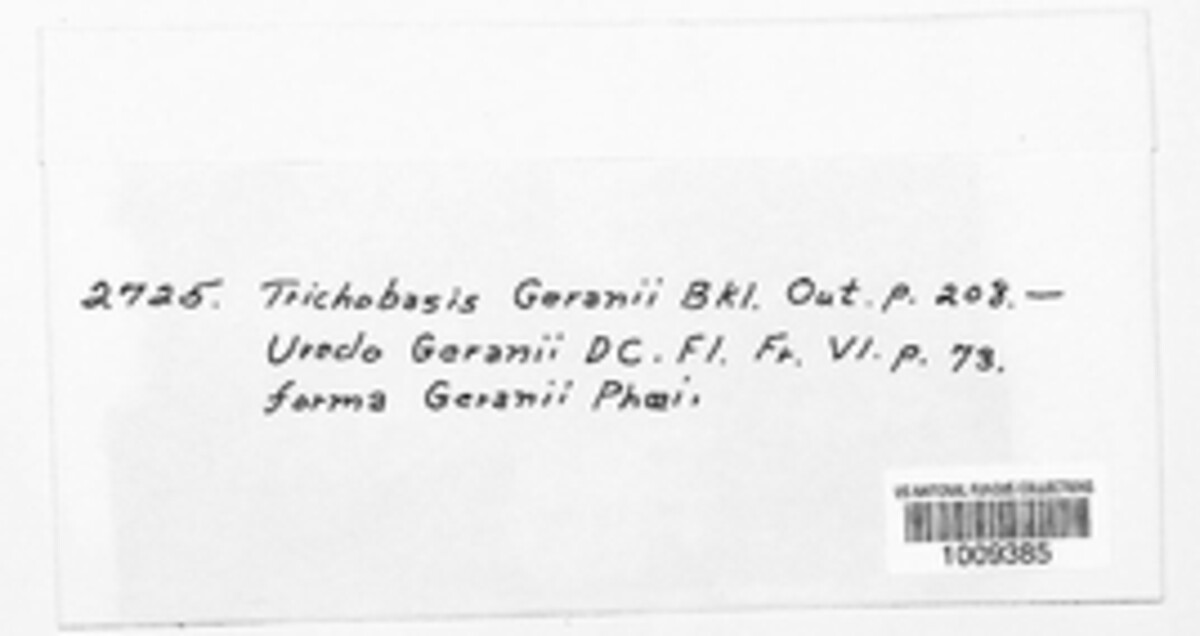 2725. Trichobasis Geranii Bkl. Out. p. 208. —
Uredo Geranii DC. Fl. Fr. VI. p. 73.
forma Geranii Phœi.
US NATIONAL FUNGUS COLLECTIONS
1009385